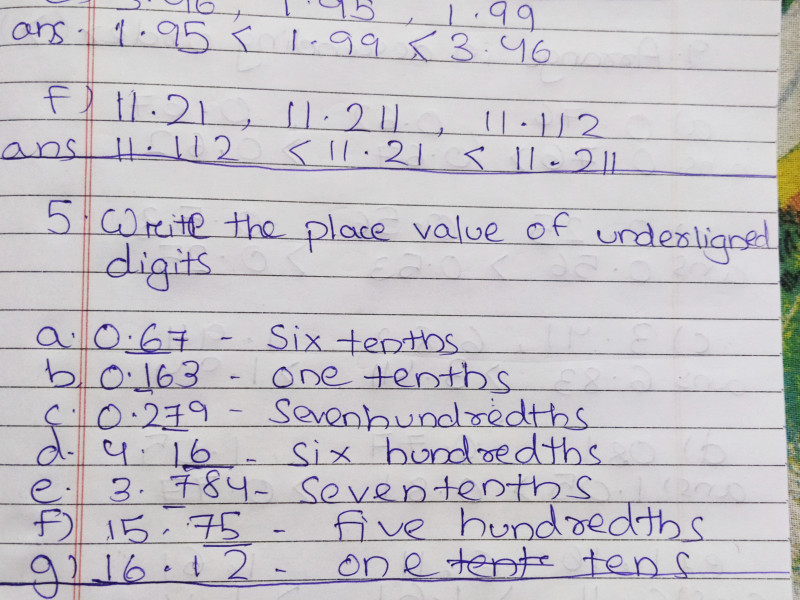 3.46, 1.95, 1.99
ans. 1.95 < 1.99 < 3.46
f) 11.21, 11.211, 11.112
ans 11.112 < 11.21 < 11.211
5. Write the place value of underligned
digits
a. 0.67 - Six tenths
b. 0.163 - one tenths
c. 0.279 - Sevenhundredths
d. 4.16 - six hundredths
e. 3.784 - seven tenths
f) 15.75 - five hundredths
g) 16.12 - one tent tens